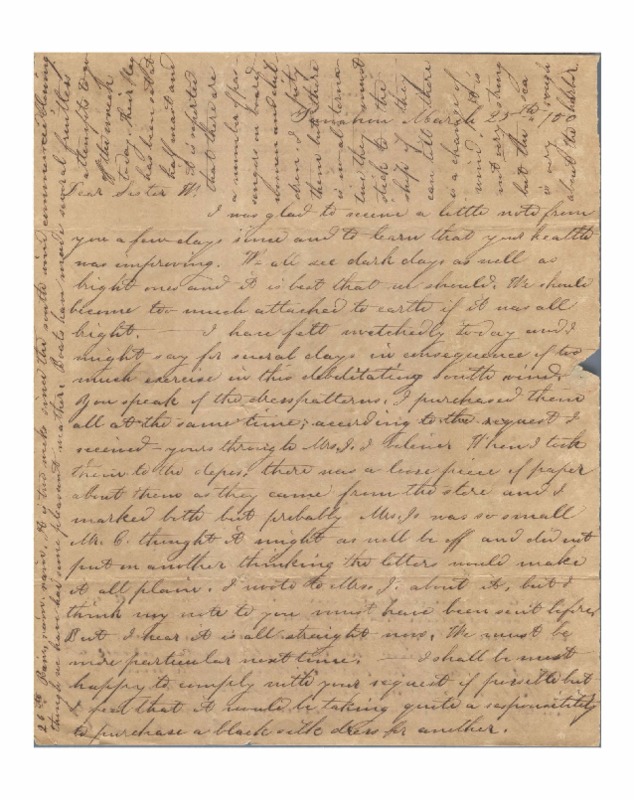 Honolulu March 25th /50
Dear Sister W!
I was glad to receive a little note from
you a few days since and to learn that your health
was improving. We all see dark days as well as
bright ones and it is best that we should. We should
become too much attached to earth if it was all
bright —— I have felt wretchedly today and I
might say for several days in consequence of too
much exercise in this debilitating south wind.
You speak of the dress patterns. I purchased them
all at the same time; according to the request I
received – yours through Mrs. J. I believe When I took
them to the depos. there was a loose piece of paper
about them as they came from the store and I
marked both but probably Mrs. Js was so small
Mr. C. thought it might as well be off and did not
put on another thinking the letters would make
it all plain. I wrote to Mrs. J. about it, but I
think my note to you must have been sent before
But I hear it is all straight now. We must be
more particular next time. —— I shall be most
happy to comply with your request if possible but
I feel that it would be taking quite a responsibility
to purchase a black silk dress for another.
26th Rain, rain, rain. It is two weeks since the south wind commenced blowing
though we have had some pleasant weather. Boats have made several fruitless
attempts to
of this week
today. Their flag
has been set at
half mast and
it is reported
that there are
a number of pas
sengers on board
women and chil
dren. I pity
them but there
is no alterna
tive they must
stick to the
ship if they
can till there
is a change of
wind. It is
not very strong
but the sea
is very rough
about the harbor.